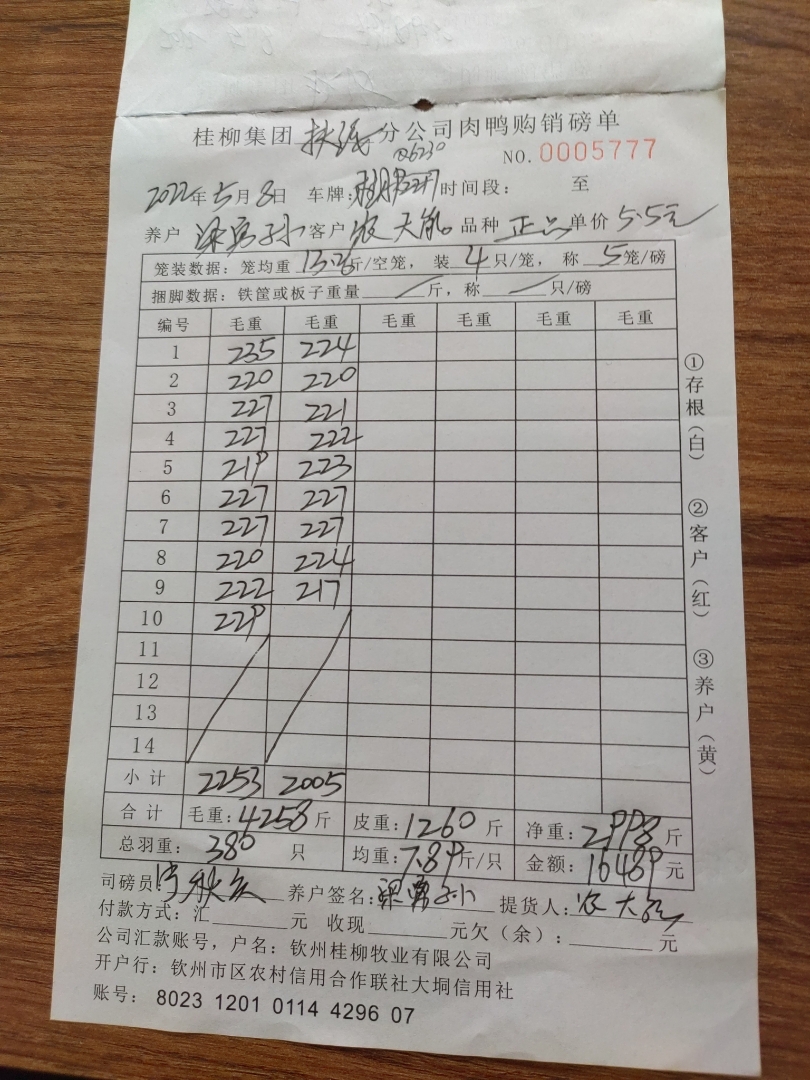 桂柳集团 扶绥 分公司肉鸭购销磅单
NO. 0005777
2022年5月8日 车牌: 时间段: 至
养户 梁勇小 客户 农大 品种 正品 单价 5.5元
笼装数据: 笼均重 斤/空笼, 装 4 只/笼, 称 5 笼/磅
捆脚数据: 铁筐或板子重量 斤, 称 只/磅
编号 毛重 毛重 毛重 毛重 毛重 毛重
1 235 224
2 220 220
3 227 221
4 227 222
5 219 223
6 227 227
7 227 227
8 220 224
9 222 217
10 229
11
12
13
14
小计 2253 2005
合计 毛重: 4258 斤 皮重: 1260 斤 净重: 2998 斤
总羽重: 380 只 均重: 7.89 斤/只 金额: 16489 元
司磅员: 养户签名: 梁勇小 提货人: 农大
付款方式: 汇 元 收现 元欠(余): 元
公司汇款账号, 户名: 钦州桂柳牧业有限公司
开户行: 钦州市区农村信用合作联社大垌信用社
账号: 8023 1201 0114 4296 07
①存根(白) ②客户(红) ③养户(黄)